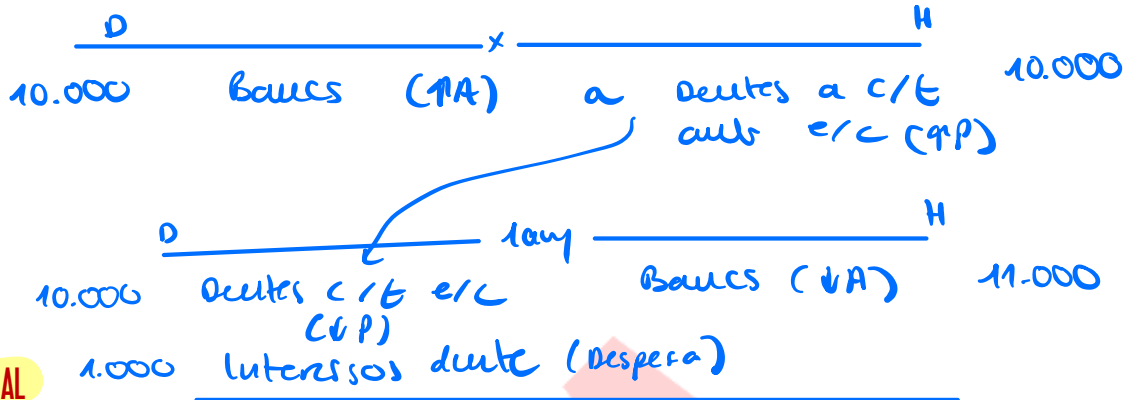 D x H
10.000 Bancs (↑A) a Deutes a c/t 10.000
amb e/c (↑P)
D 1 any H
10.000 Deutes c/t e/c Bancs (↓A) 11.000
(↓P)
1.000 Interessos deute (Despesa)
AL